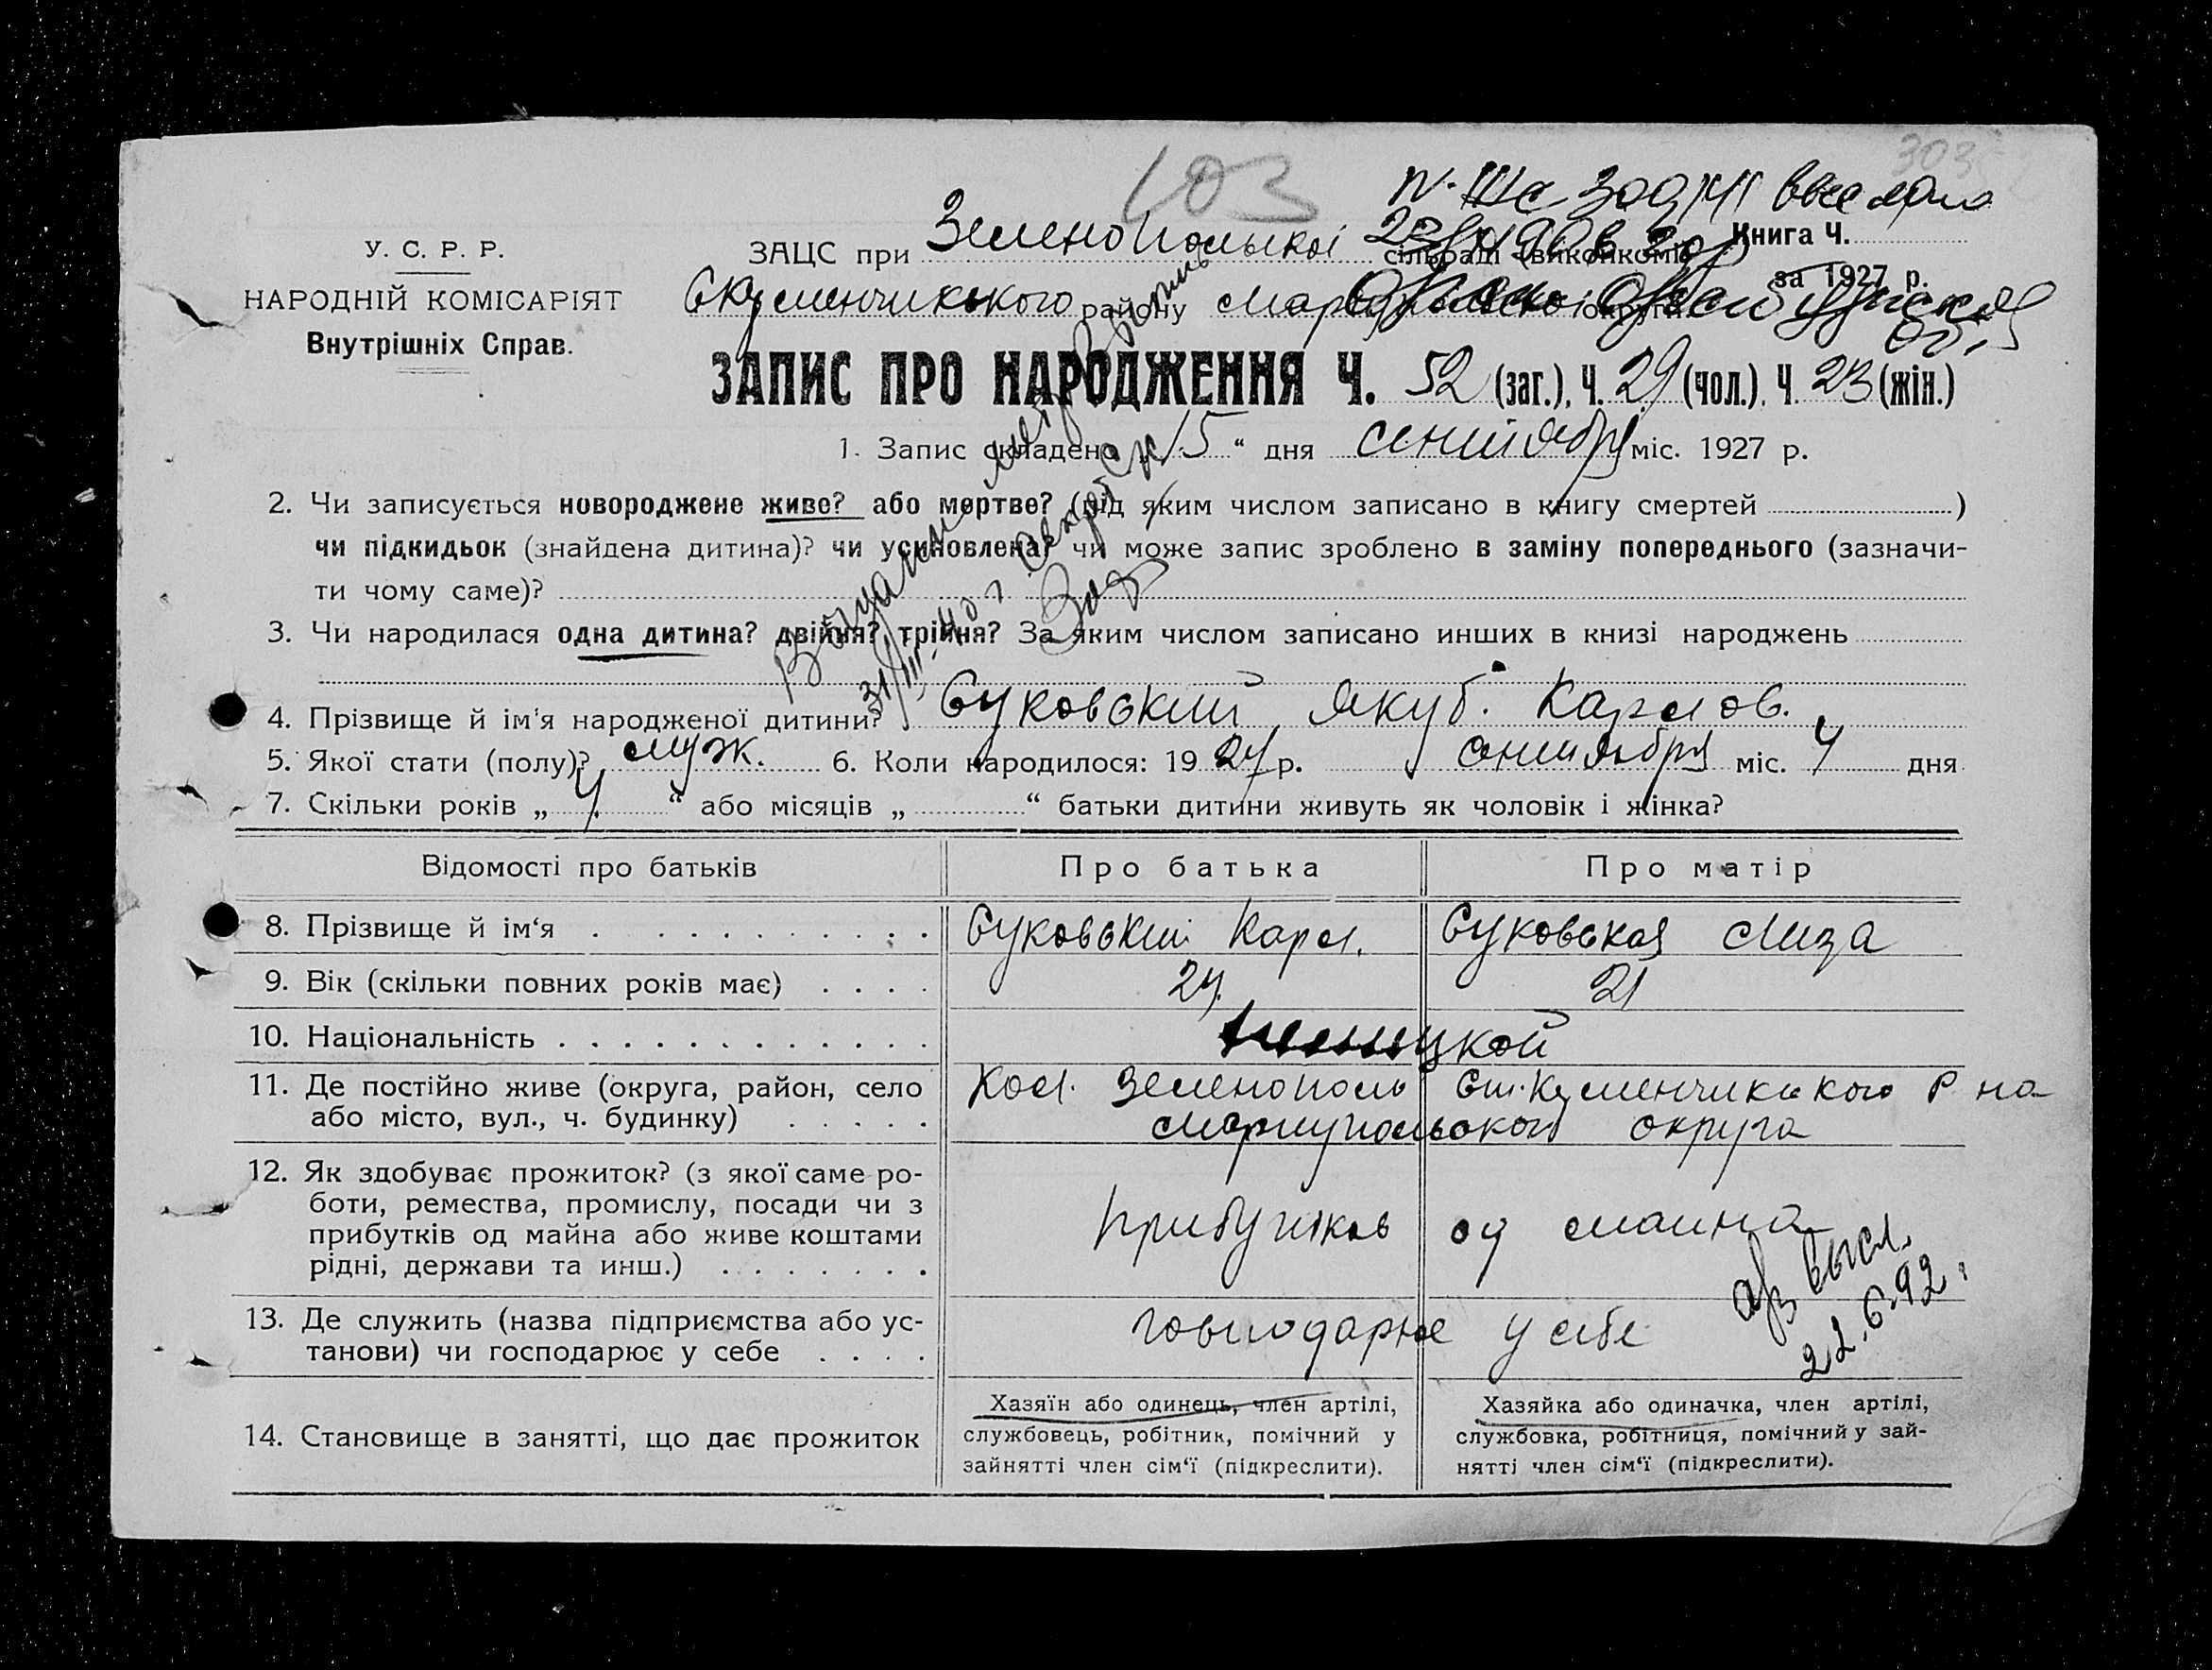 103
303
У. С. Р. Р.
НАРОДНІЙ КОМІСАРІЯТ
Внутрішніх Справ.
ЗАЦС при Зеленопольскої сільраді (виконкомі)
Книга Ч.
за 1927 р.
району округи
ЗАПИС ПРО НАРОДЖЕННЯ Ч. 52 (заг.), Ч. 29 (чол.), Ч. 23 (жін.)
1. Запис складено „ 15 “ дня сентября міс. 1927 р.
2. Чи записується новороджене живе? або мертве? (під яким числом записано в книгу смертей )
чи підкидьок (знайдена дитина)? чи усиновлена? чи може запис зроблено в заміну попереднього (зазначи-
ти чому саме)?
3. Чи народилася одна дитина? двійня? трійня? За яким числом записано инших в книзі народжень
4. Прізвище й ім'я народженої дитини? Суковский Якуб. Карлов.
5. Якої стати (полу)? муж. 6. Коли народилося: 1927 р. сентября міс. 4 дня
7. Скільки років „ 4. “ або місяців „ “ батьки дитини живуть як чоловік і жінка?
Відомості про батьків Про батька Про матір
8. Прізвище й ім‘я Суковский Карл. Суковская Лиза
9. Вік (скільки повних років має) 24. 21
10. Національність немецкой
11. Де постійно живе (округа, район, село Кол. Зеленополь
або місто, вул., ч. будинку) Мариупольского округа
12. Як здобуває прожиток? (з якої саме ро-
боти, ремества, промислу, посади чи з
прибутків од майна або живе коштами
рідні, держави та инш.)
прибутков од маина
13. Де служить (назва підприємства або ус-
танови) чи господарює у себе
господарює у себе
22.6.92.
14. Становище в занятті, що дає прожиток
Хазяїн або одинець, член артілі,
службовець, робітник, помічний у
зайнятті член сім‘ї (підкреслити).
Хазяйка або одиначка, член артілі,
службовка, робітниця, помічний у зай-
нятті член сім‘ї (підкреслити).